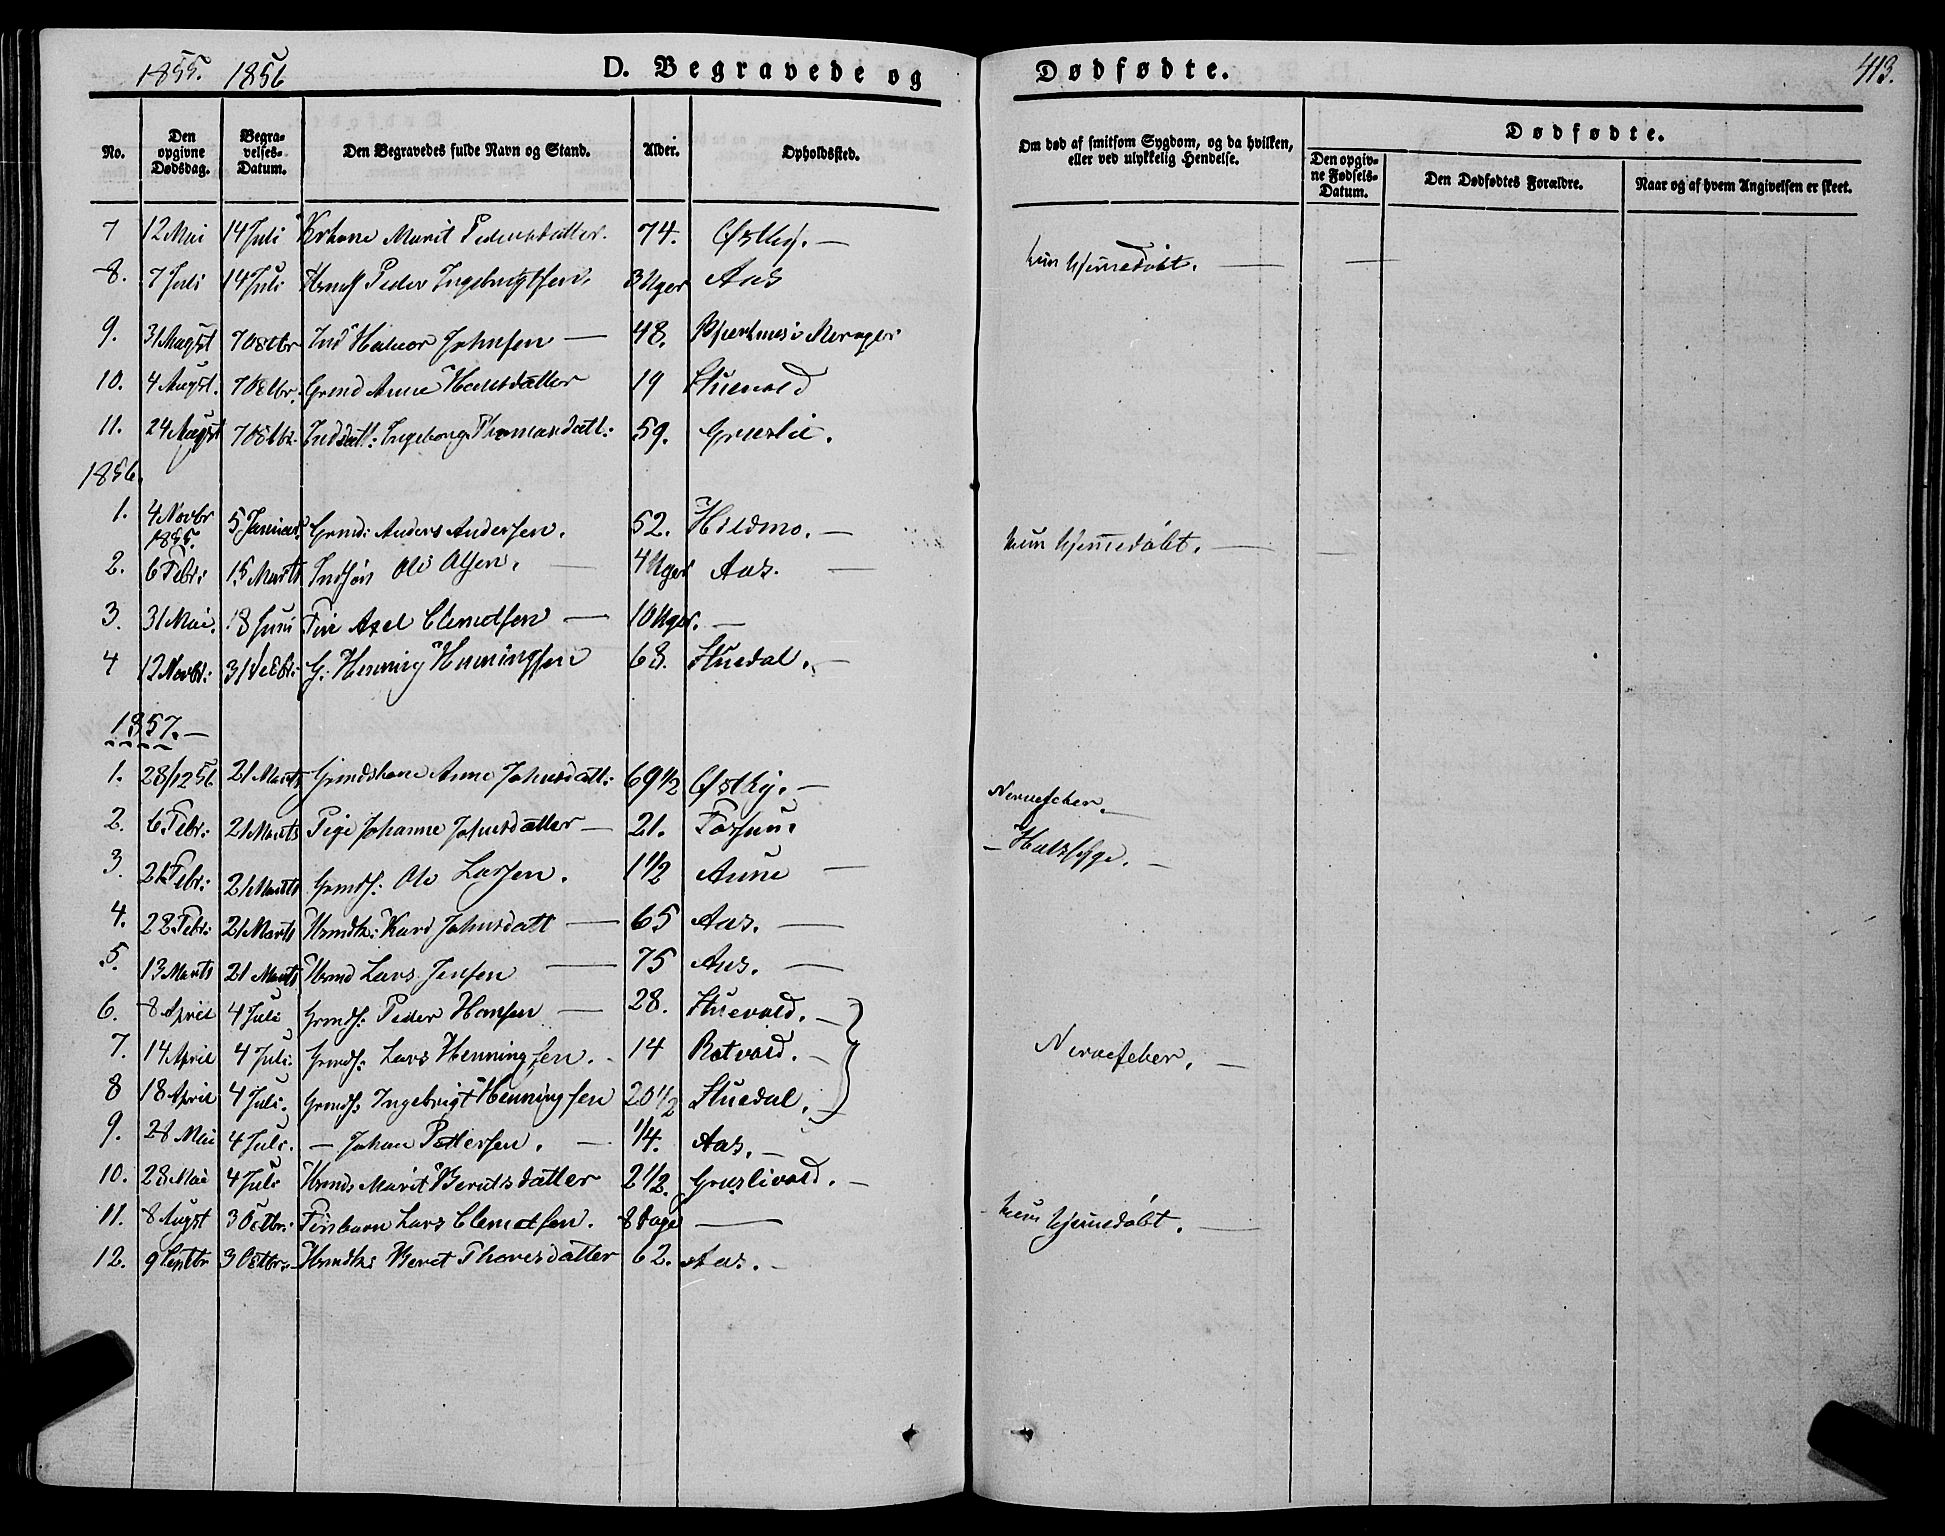 1855. 1856 D. Begravede og Dødfødte. 413.
No. Den opgivne Dødsdag. Begravelses-Datum. Den Begravedes fulde Navn og Stand. Alder. Opholdssted. Om død af smitsom Sygdom, og da hvilken, eller ved ulykkelig Hendelse. Dødfødte. Den opgivne Fødsels-Datum. Den Dødfødtes Forældre. Naar og af hvem Angivelsen er skeet.
7 12 Mai 14 Juli Marit Pedersdatter. 74. Østby. —
8. 7 Juli 14 Juli Peder Ingebrigtsen, 3 Uger Aas kun hjemedøbt. — —
9. 31 Augst 7 Octbr Ind Halvor Johnsen — 48.
10. 4 Augst. 7 Octbr. Grmd Anne Hansdatter 19 Stuevold
11. 24 Augst 7 Octbr. Indsdatt: Ingeborg Thomasdatt: 59. Græslie.
1856.
1. 4 Novbr 1855. 5 Januar Grmd: Anders Andersen. 52. Hildmo. —
2. 6 Febr: 15 Marts Indsøn Ole Olsen. — 4 Uger Aas. — kun hjemedøbt. — —
3. 31 Mai. 18 Juni Fin Axel Clemetsen — 10 Uger. —
4 12 Novbr: 31 Decbr: G: Henning Henningsen 68. Stuedal. —
1857. —
1. 28/12 56 21 Marts Grmdskone Anne Johnsdatt: 69 1/2 Østby. — Nervefeber. —
2. 6 Febr: 21 Marts Pige Johanne Johnsdatter — 21. Fossum — Halssyge. —
3. 21 Febr: 21 Marts Grmds: Ole Larsen. 1 1/2 Aune —
4. 28 Febr: 21 Marts Hsmdk: Kari Johnsdatt — 65 Aas. —
5. 13 Marts 21 Marts Hsmd Lars Jensen — 75 Aas. —
6. 8 April 4 Juli Grmds: Peder Hansen — 28. Stuevold. —
7. 14 April 4 Juli. Grmds: Lars Henningsen. — 14 Rotvold. — Nervefeber. —
8 18 April 4 Juli. Grmds: Ingebrigt Henningsen 20 1/2 Stuedal. —
9. 28 Mai 4 Juli. — Johan Pettersen. — 1/4. Aas. —
10. 28 Mai 4 Juli Hsmds Marit Berntsdatter 2 1/2. Græslivold. —
11. 8 Augst 3 Octbr: Finbarn Lars Clemetsen. 8 Dage — kun hjemedøbt. —
12. 9 Septbr 3 Octbr: Hsmdk: Beret Thoresdatter 62. Aas. —